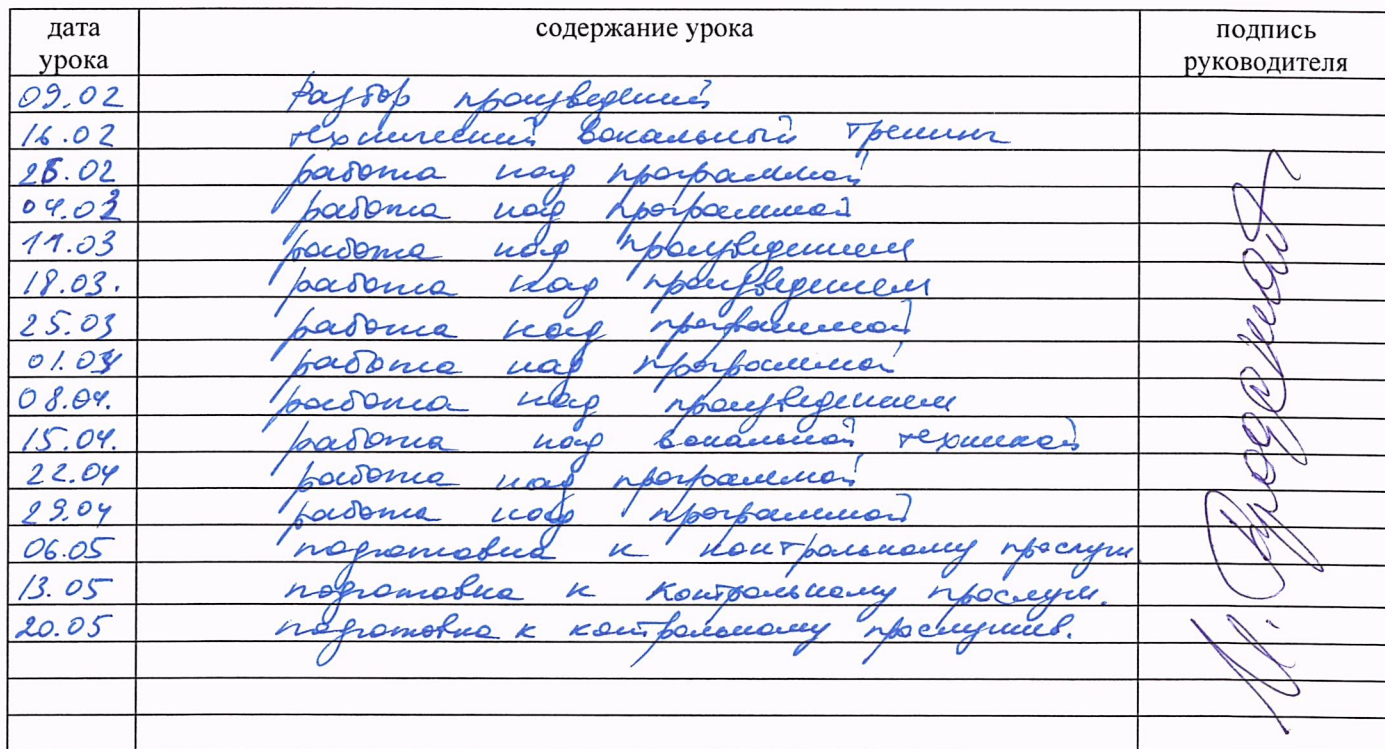 дата урока содержание урока подпись руководителя
09.02 Разбор произведений
16.02 технический вокальный тренинг
25.02 работа над программой
04.03 работа над программой
11.03 работа над произведением
18.03. работа над произведением
25.03 работа над программой
01.04 работа над программой
08.04. работа над произведением
15.04. работа над вокальной техникой
22.04 работа над программой
29.04 работа над программой
06.05 подготовка к контрольному прослуш.
13.05 подготовка к контрольному прослуш.
20.05 подготовка к контрольному прослушив.